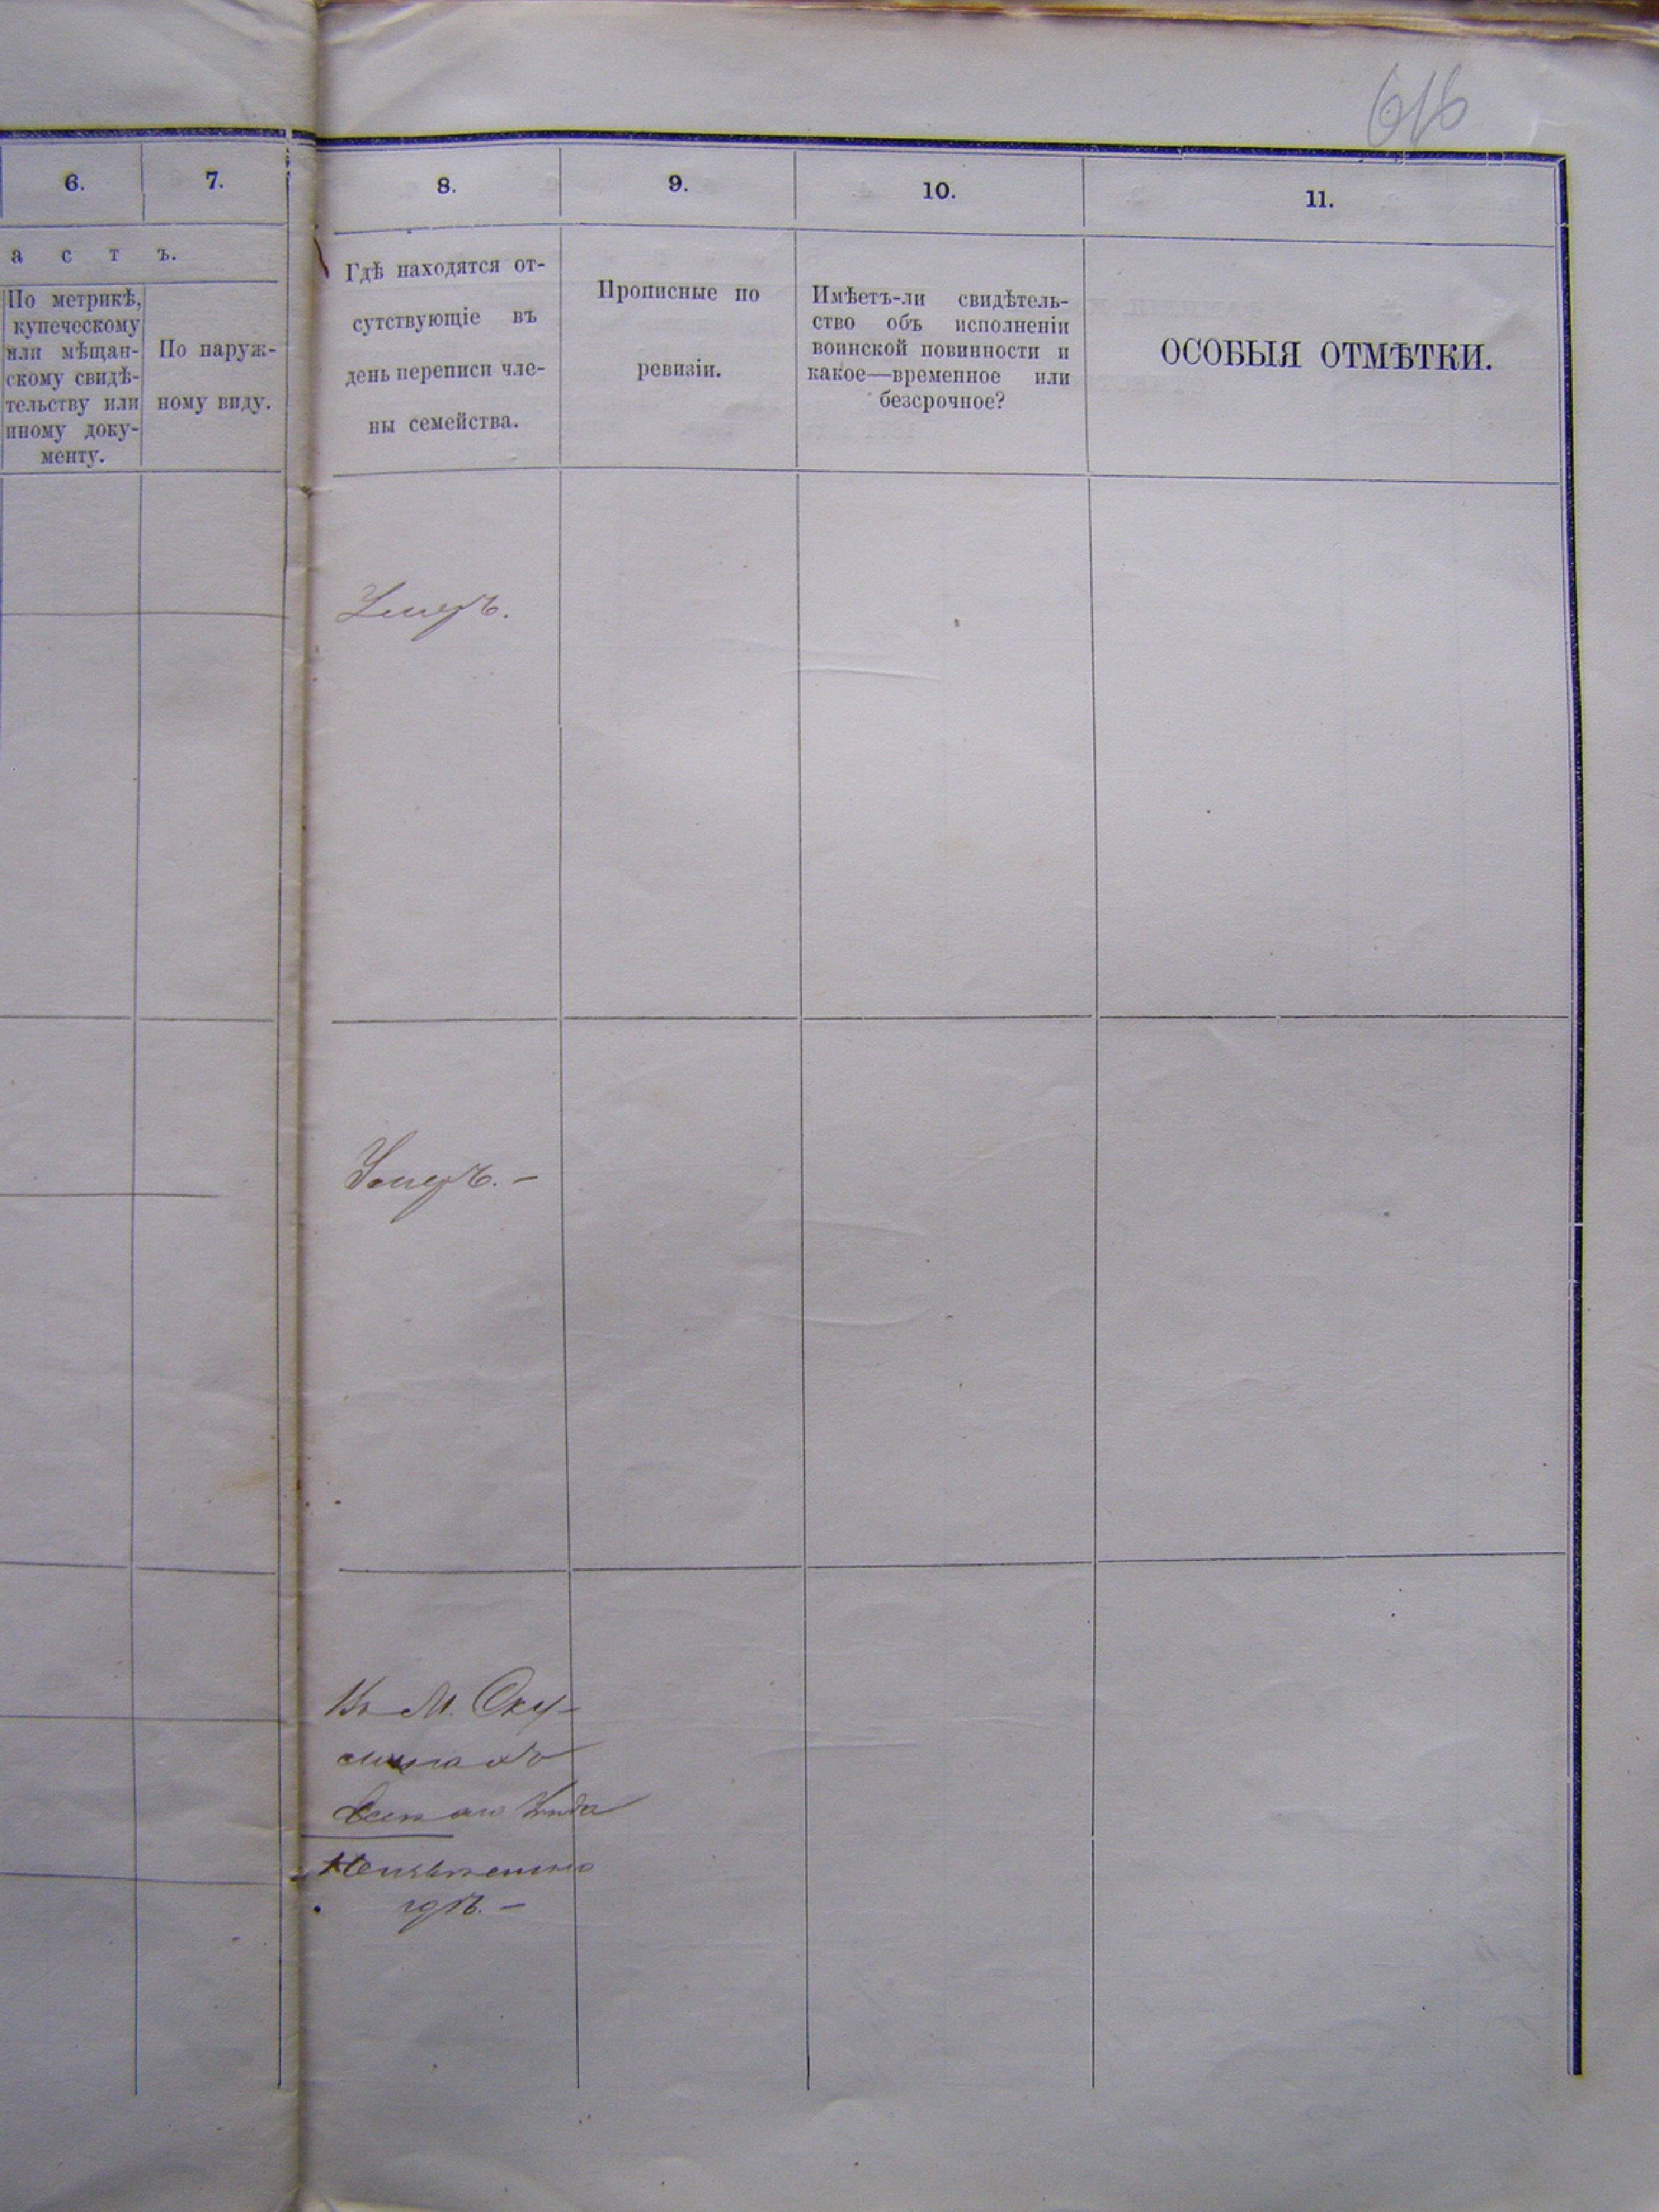 616
6.
7.
8.
9.
10.
11.
а с т ъ.
По метрикѣ,
купеческому
или мѣщан-
скому свидѣ-
тельству или
иному доку-
менту.
По наруж-
ному виду.
Гдѣ находятся от-
сутствующіе въ
день переписи чле-
ны семейства.
Прописные по
ревизіи.
Имѣетъ-ли свидѣтель-
ство объ исполненіи
воинской повинности и
какое—временное или
безсрочное?
ОСОБЫЯ ОТМѢТКИ.
Умеръ.
Умеръ. –
Въ М.
Неизвѣстно
гдѣ. –